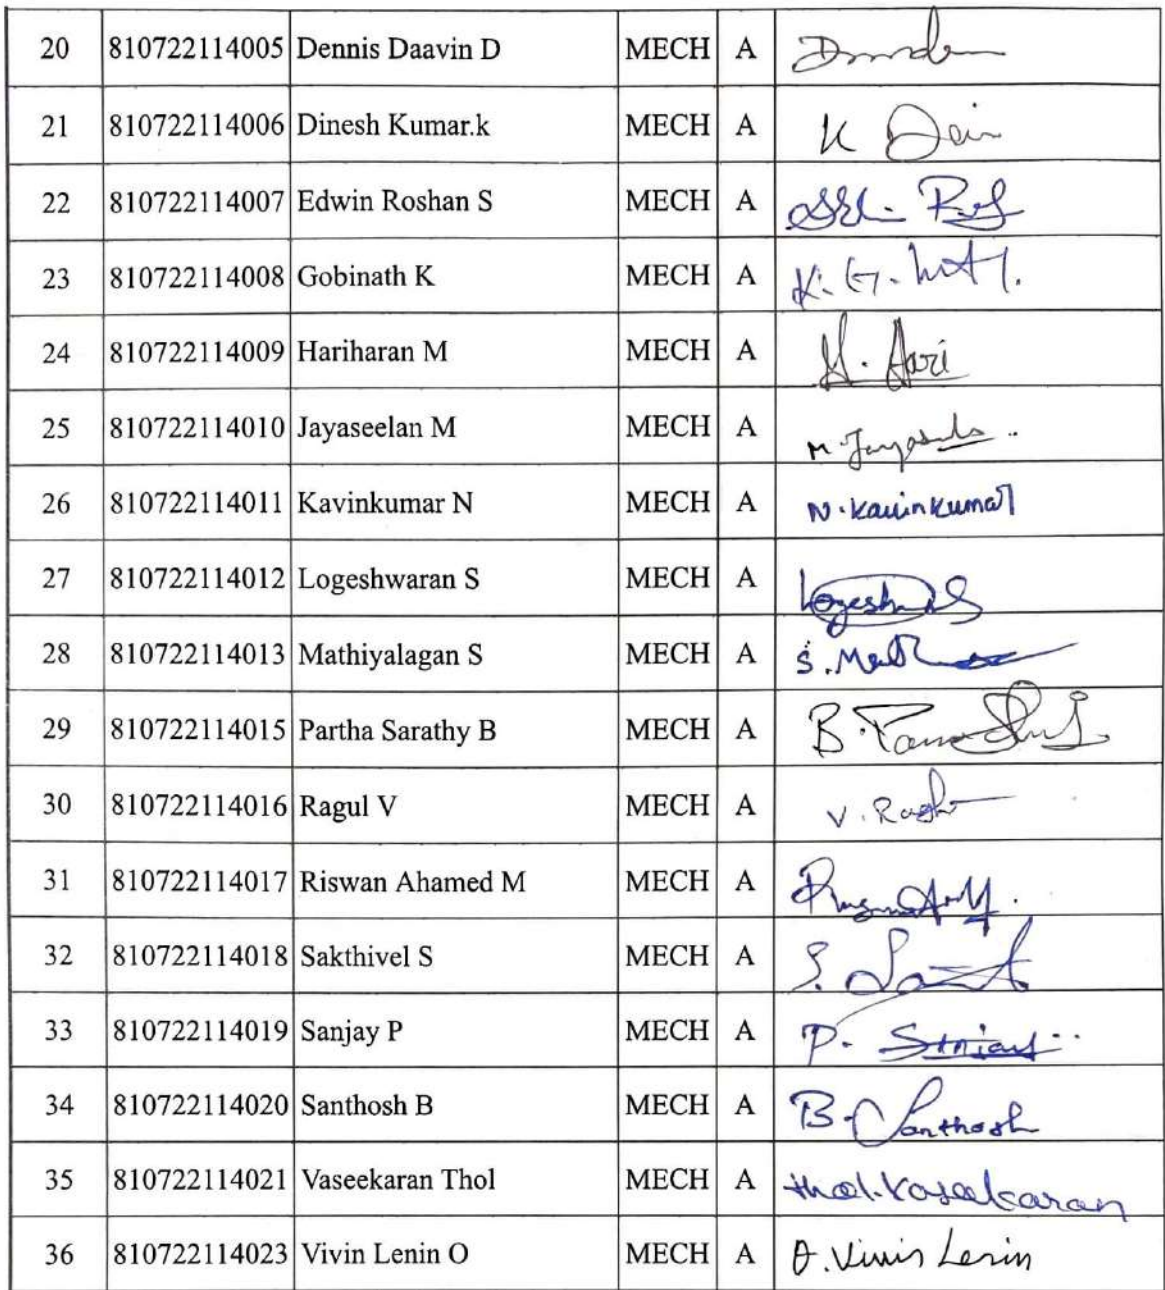 20 810722114005 Dennis Daavin D MECH A
21 810722114006 Dinesh Kumar.k MECH A K
22 810722114007 Edwin Roshan S MECH A
23 810722114008 Gobinath K MECH A K. G.
24 810722114009 Hariharan M MECH A M. Hari
25 810722114010 Jayaseelan M MECH A
26 810722114011 Kavinkumar N MECH A N. Kavinkumar
27 810722114012 Logeshwaran S MECH A
28 810722114013 Mathiyalagan S MECH A
29 810722114015 Partha Sarathy B MECH A
30 810722114016 Ragul V MECH A
31 810722114017 Riswan Ahamed M MECH A
32 810722114018 Sakthivel S MECH A
33 810722114019 Sanjay P MECH A P. Sanjay
34 810722114020 Santhosh B MECH A B. Santhosh
35 810722114021 Vaseekaran Thol MECH A
36 810722114023 Vivin Lenin O MECH A O. Vivin Lenin